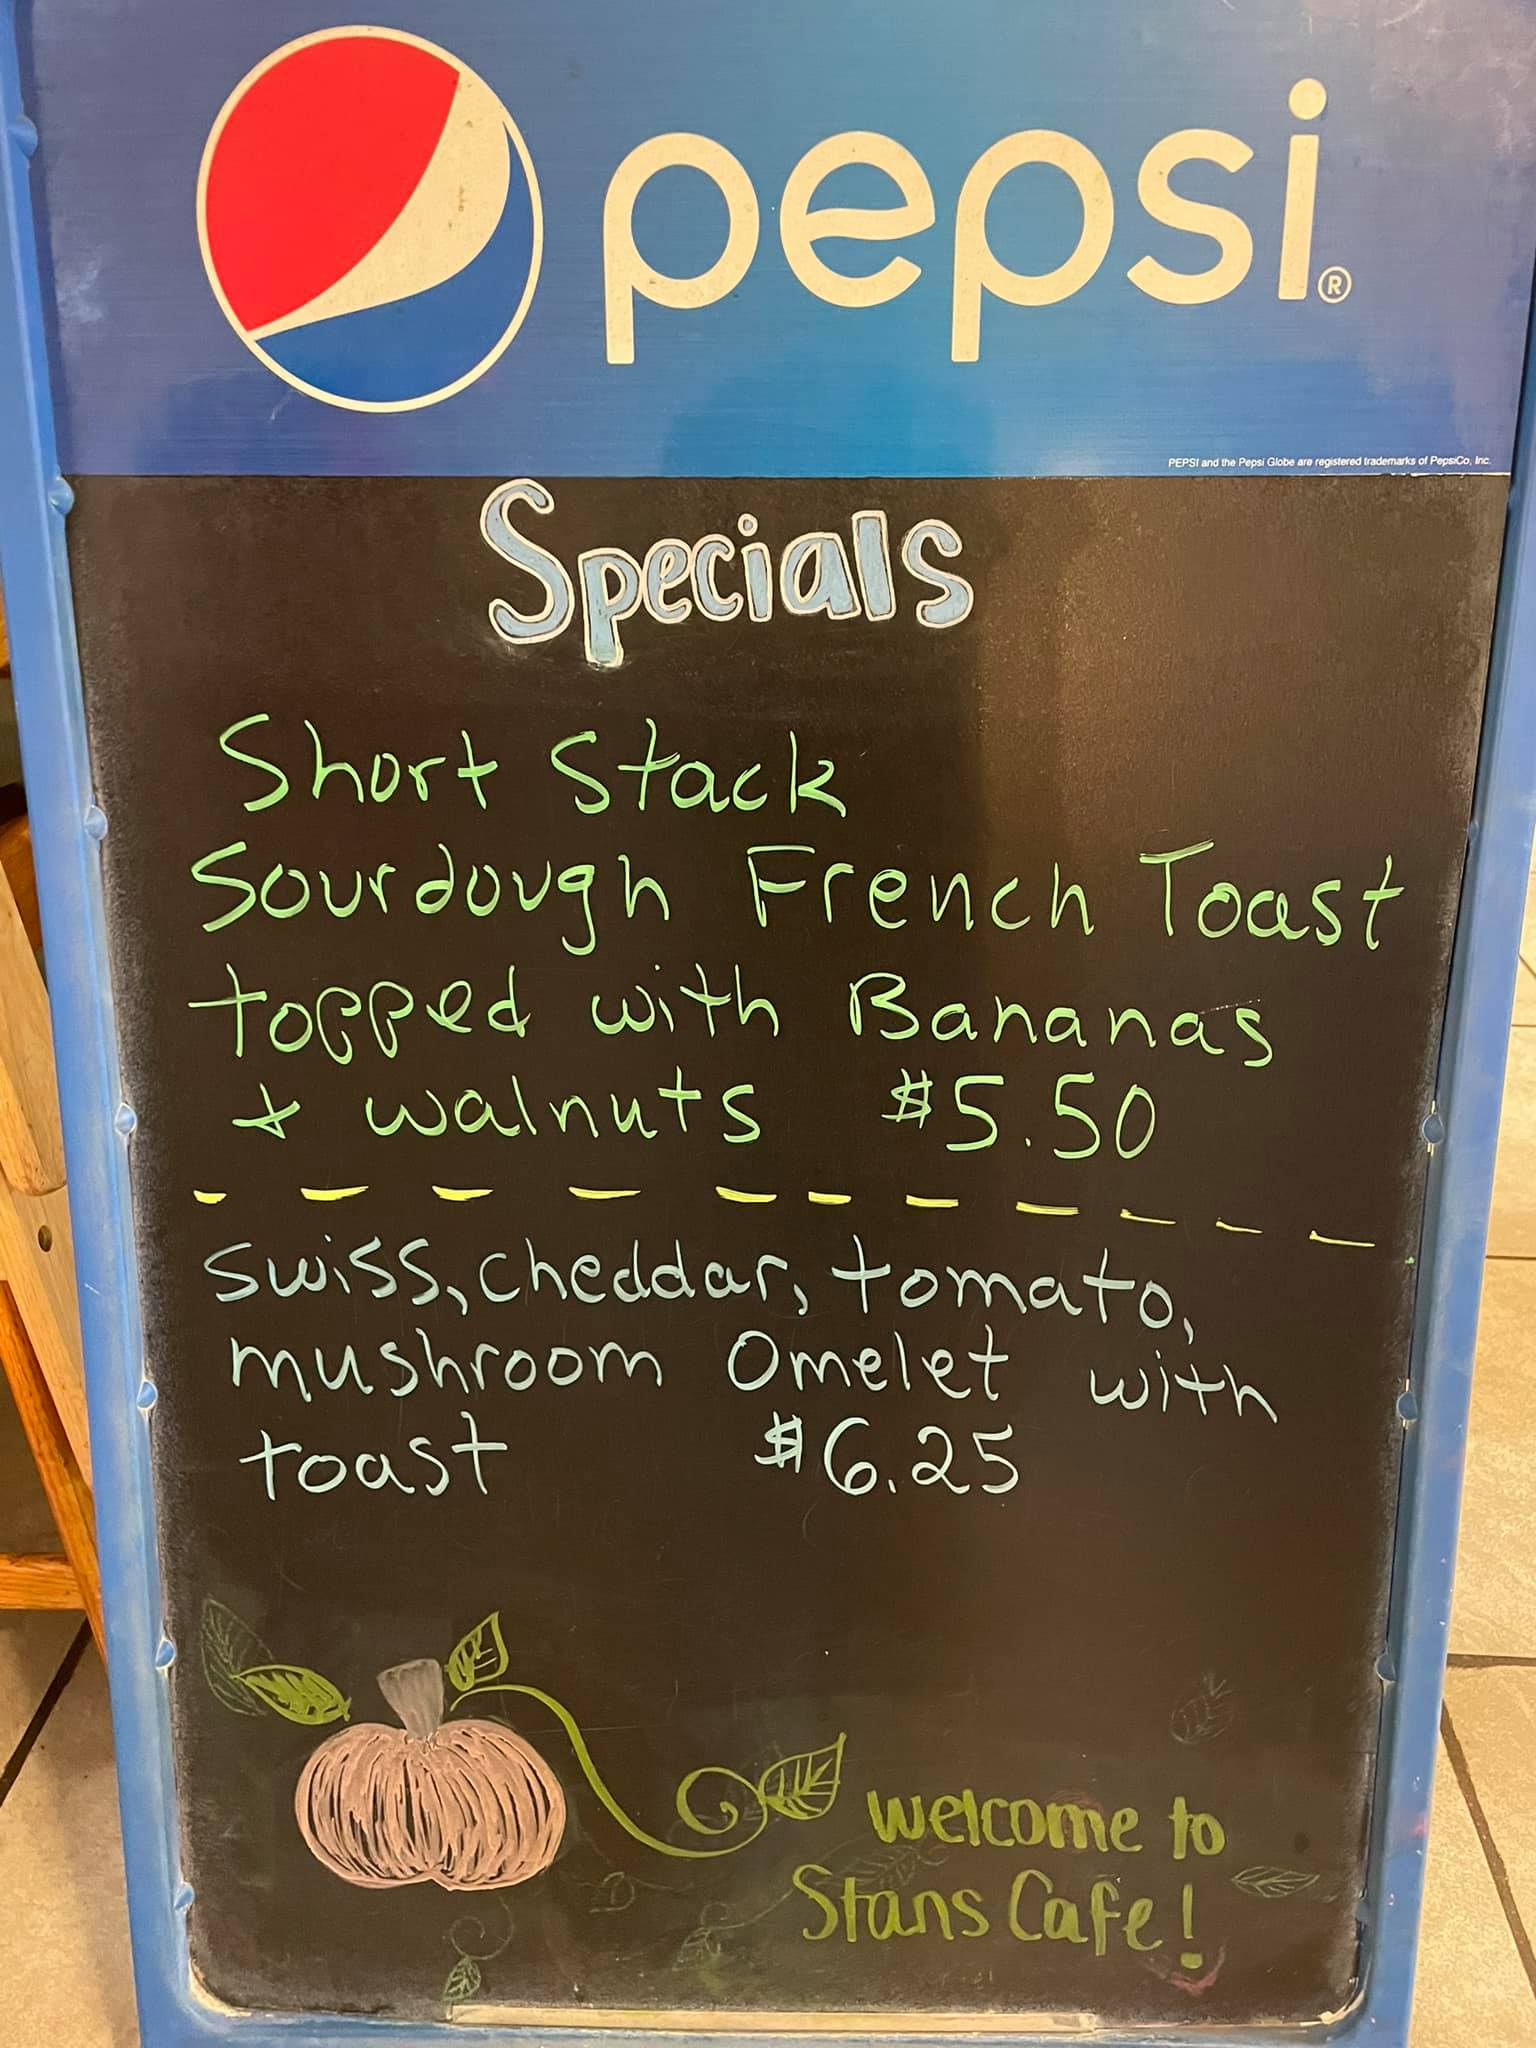 pepsi®
PEPSI and the Pepsi Globe are registered trademarks of PepsiCo, Inc.
Specials
Short Stack
Sourdough French Toast
topped with Bananas
& walnuts $5.50
swiss, cheddar, tomato,
mushroom Omelet with
toast $6.25
welcome to
Stans Cafe!